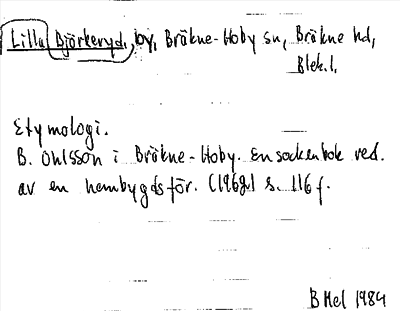 Lilla Björkeryd, by, Bräkne-Hoby sn, Bräkne hd,
Blek.l.
Etymologi.
B. Ohlsson i Bräkne-Hoby. En sockenbok red.
av en hembygdsför. (1962) s. 116 f.
B Hel 1984